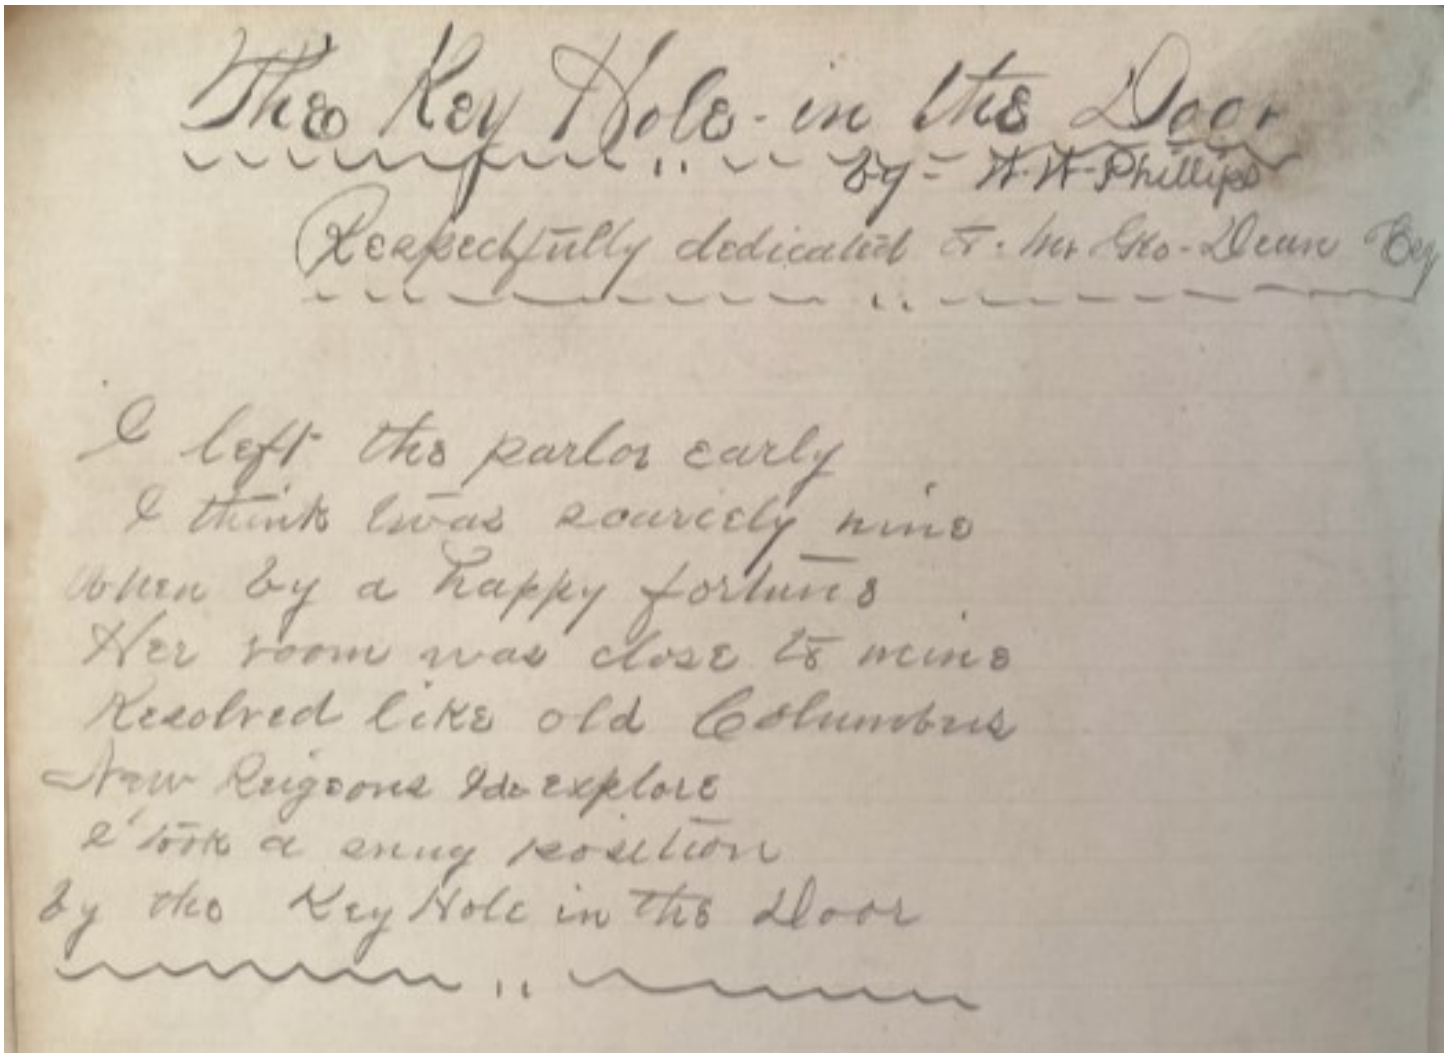 The Key Hole - in the Door
by - W. W. Phillips
Respectfully dedicated to. Mr Geo - Dean Esq
I left the parlor early
I think twas scarcely nine
When by a happy fortune
Her room was close to mine
Resolved like old Columbus
New Reigeons to explore
I took a snug position
by the Key Hole in the Door